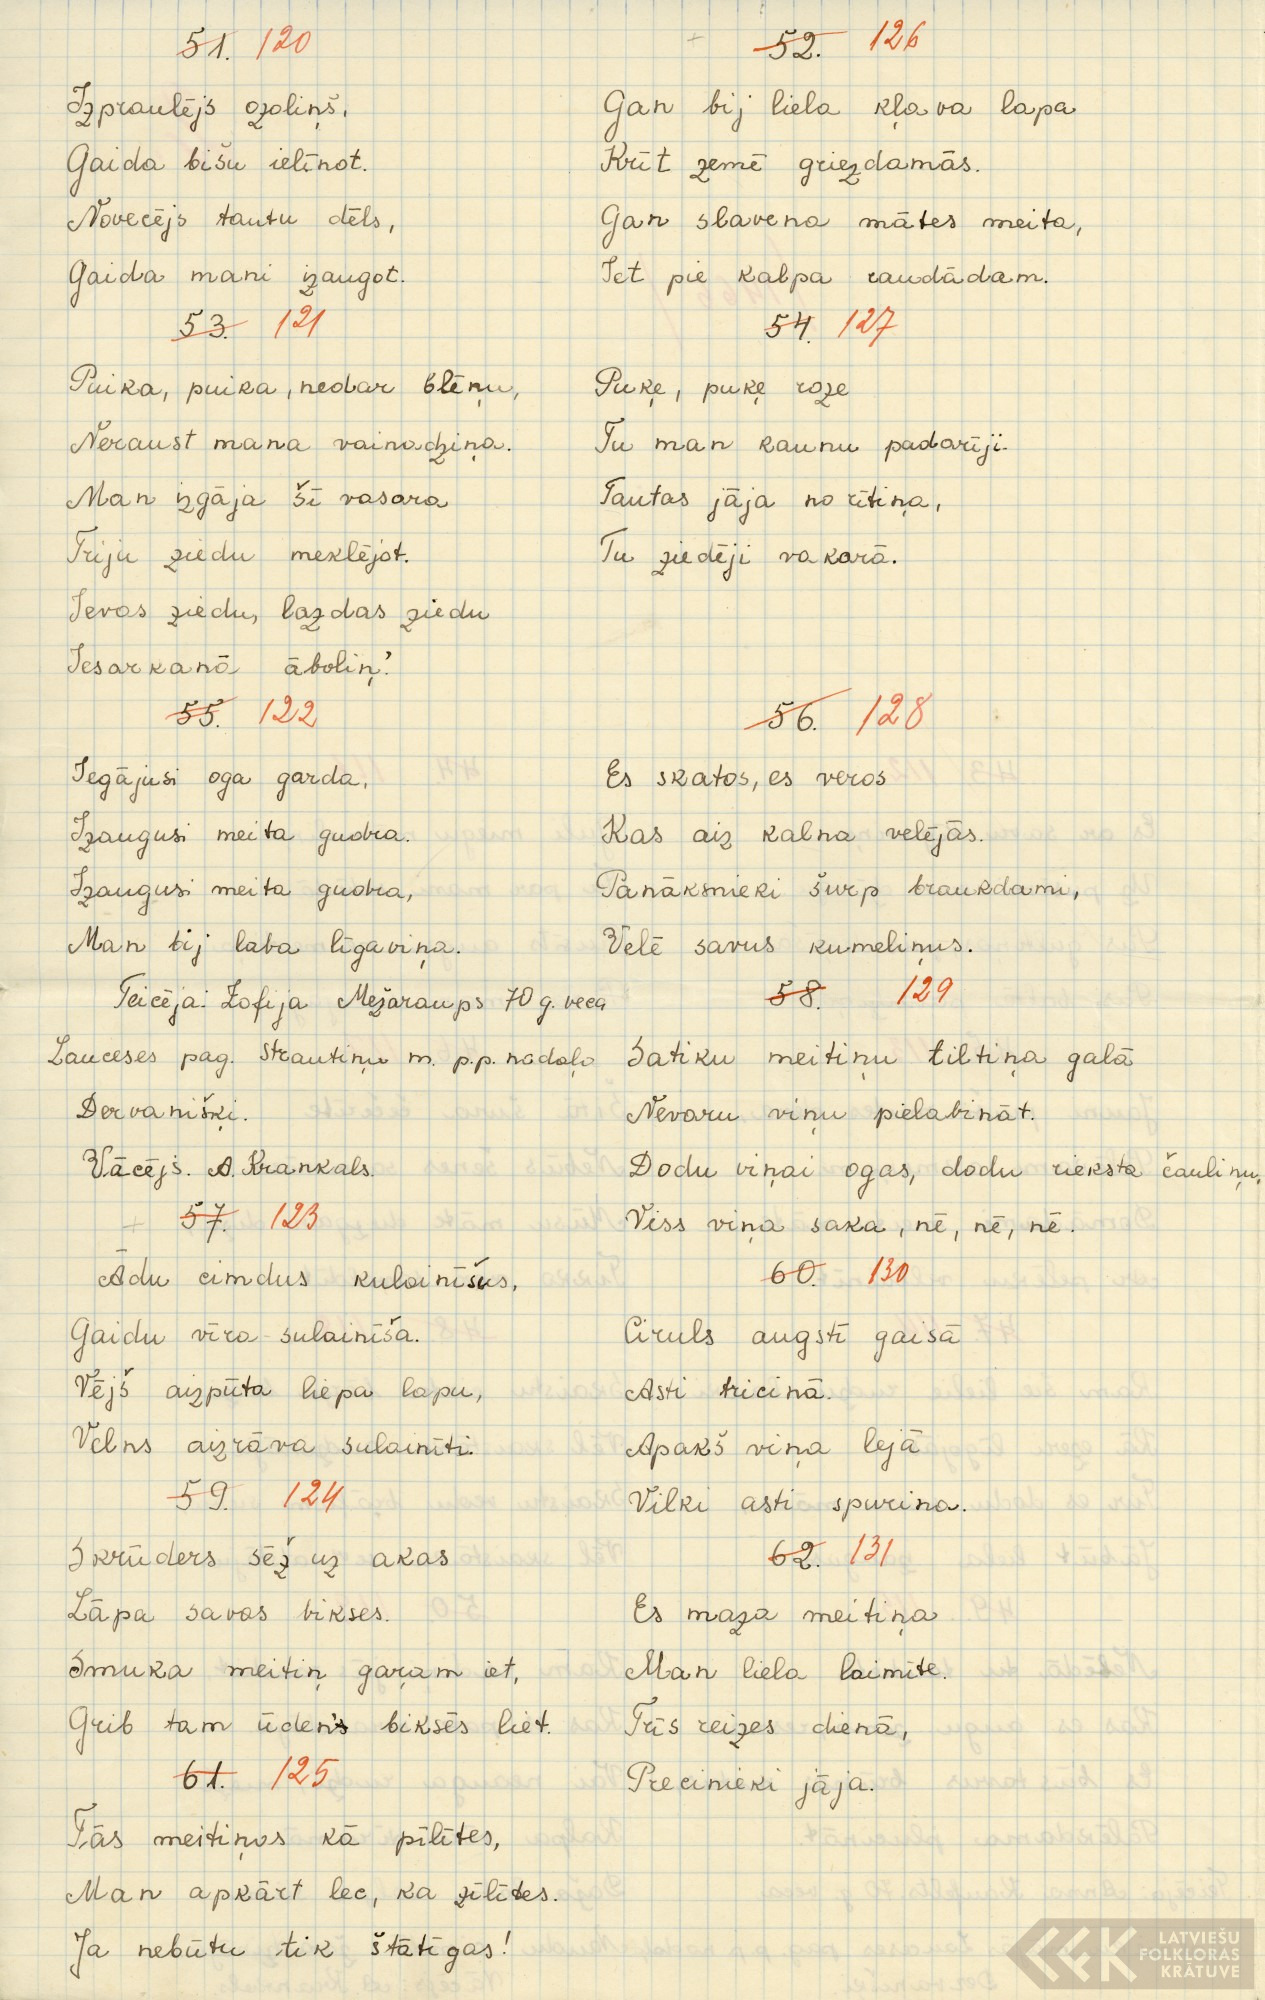 51. 120
Izpraulējs ozoliņš,
Gaida bišu ielīnot.
Novecējs tautu dēls,
Gaida mani izaugot.
53. 121
Puika, puika, nedar blēņu,
Neraust mana vainadziņa.
Man izgāja šī vasara
Triju ziedu meklējot.
Ievas ziedu, lazdas ziedu
Iesarkanā āboliņ'.
55. 122
Iegājusi oga garda,
Izaugusi meita gudra.
Izaugusi meita gudra,
Man bij laba līgaviņa.
Teicēja: Zofija Mežaraups 70 g. veca
Lauceses pag. Strautiņu m. p.p. nodaļa
Dervaniški.
Vācējs. A. Krankals.
57. 123
Ādu cimdus kulainīšus,
Gaidu vīra sulainīša.
Vējš aizpūta liepa lapu,
Velns aizrāva sulainīti.
59. 124
Skrūders sēž uz akas
Lāpa savas bikses.
Smuka meitiņ gaŗam iet,
Grib tam ūden's biksēs liet.
61. 125
Tās meitiņas kā pīlītes,
Man apkārt lec, ka zīlītes.
Ja nebūtu tik štātīgas!
52. 126
Gan bij liela kļava lapa
Krīt zemē griezdamās.
Gan slavena mātes meita,
Iet pie kalpa raudādam.
54. 127
Puķe, puķe roze
Tu man kaunu padarīji.
Tautas jāja no rītiņa,
Tu ziedēji vakarā.
56. 128
Es skatos, es veros
Kas aiz kalna velējās.
Panāksnieki šurp braukdami,
Velē savus kumeliņus.
58. 129
Satiku meitiņu tiltiņa galā
Nevaru viņu pielabināt.
Dodu viņai ogas, dodu rieksta čauliņu,
Viss viņa saka, nē, nē, nē.
60. 130
Ciruls augstī gaisā
Asti tricinā.
Apakš viņa lejā
Vilki asti spurina.
62. 131
Es maza meitiņa
Man liela laimīte.
Trīs reizes dienā,
Precinieki jāja.
LATVIEŠU
FOLKLORAS
KRĀTUVE